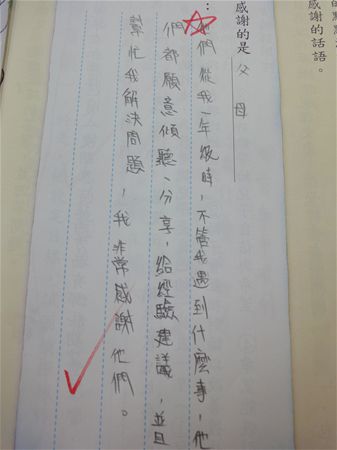 感謝的話語。
感謝的是 父母
：
他們從我一年級時，不管我遇到什麼事，他
們都願意傾聽、分享，給經驗建議，並且
幫忙我解決問題，我非常感謝他們。